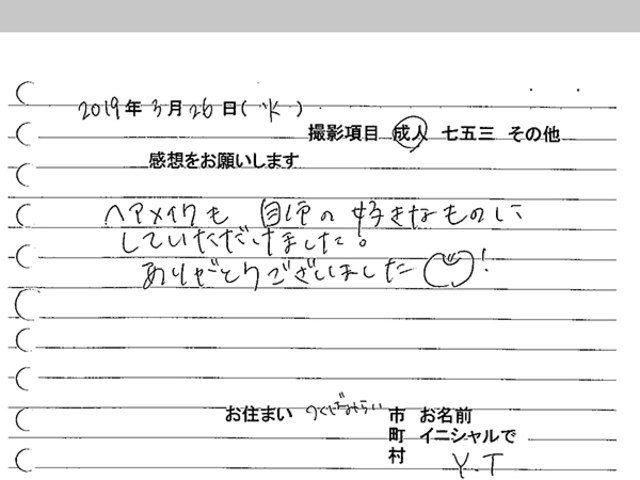 2019年3月26日(火)
撮影項目 成人 七五三 その他
感想をお願いします
ヘアメイクも 自分の 好きなものに
していただけました。
ありがとうございました!
お住まい つくばみらい 市 お名前
町 イニシャルで
村 Y.T